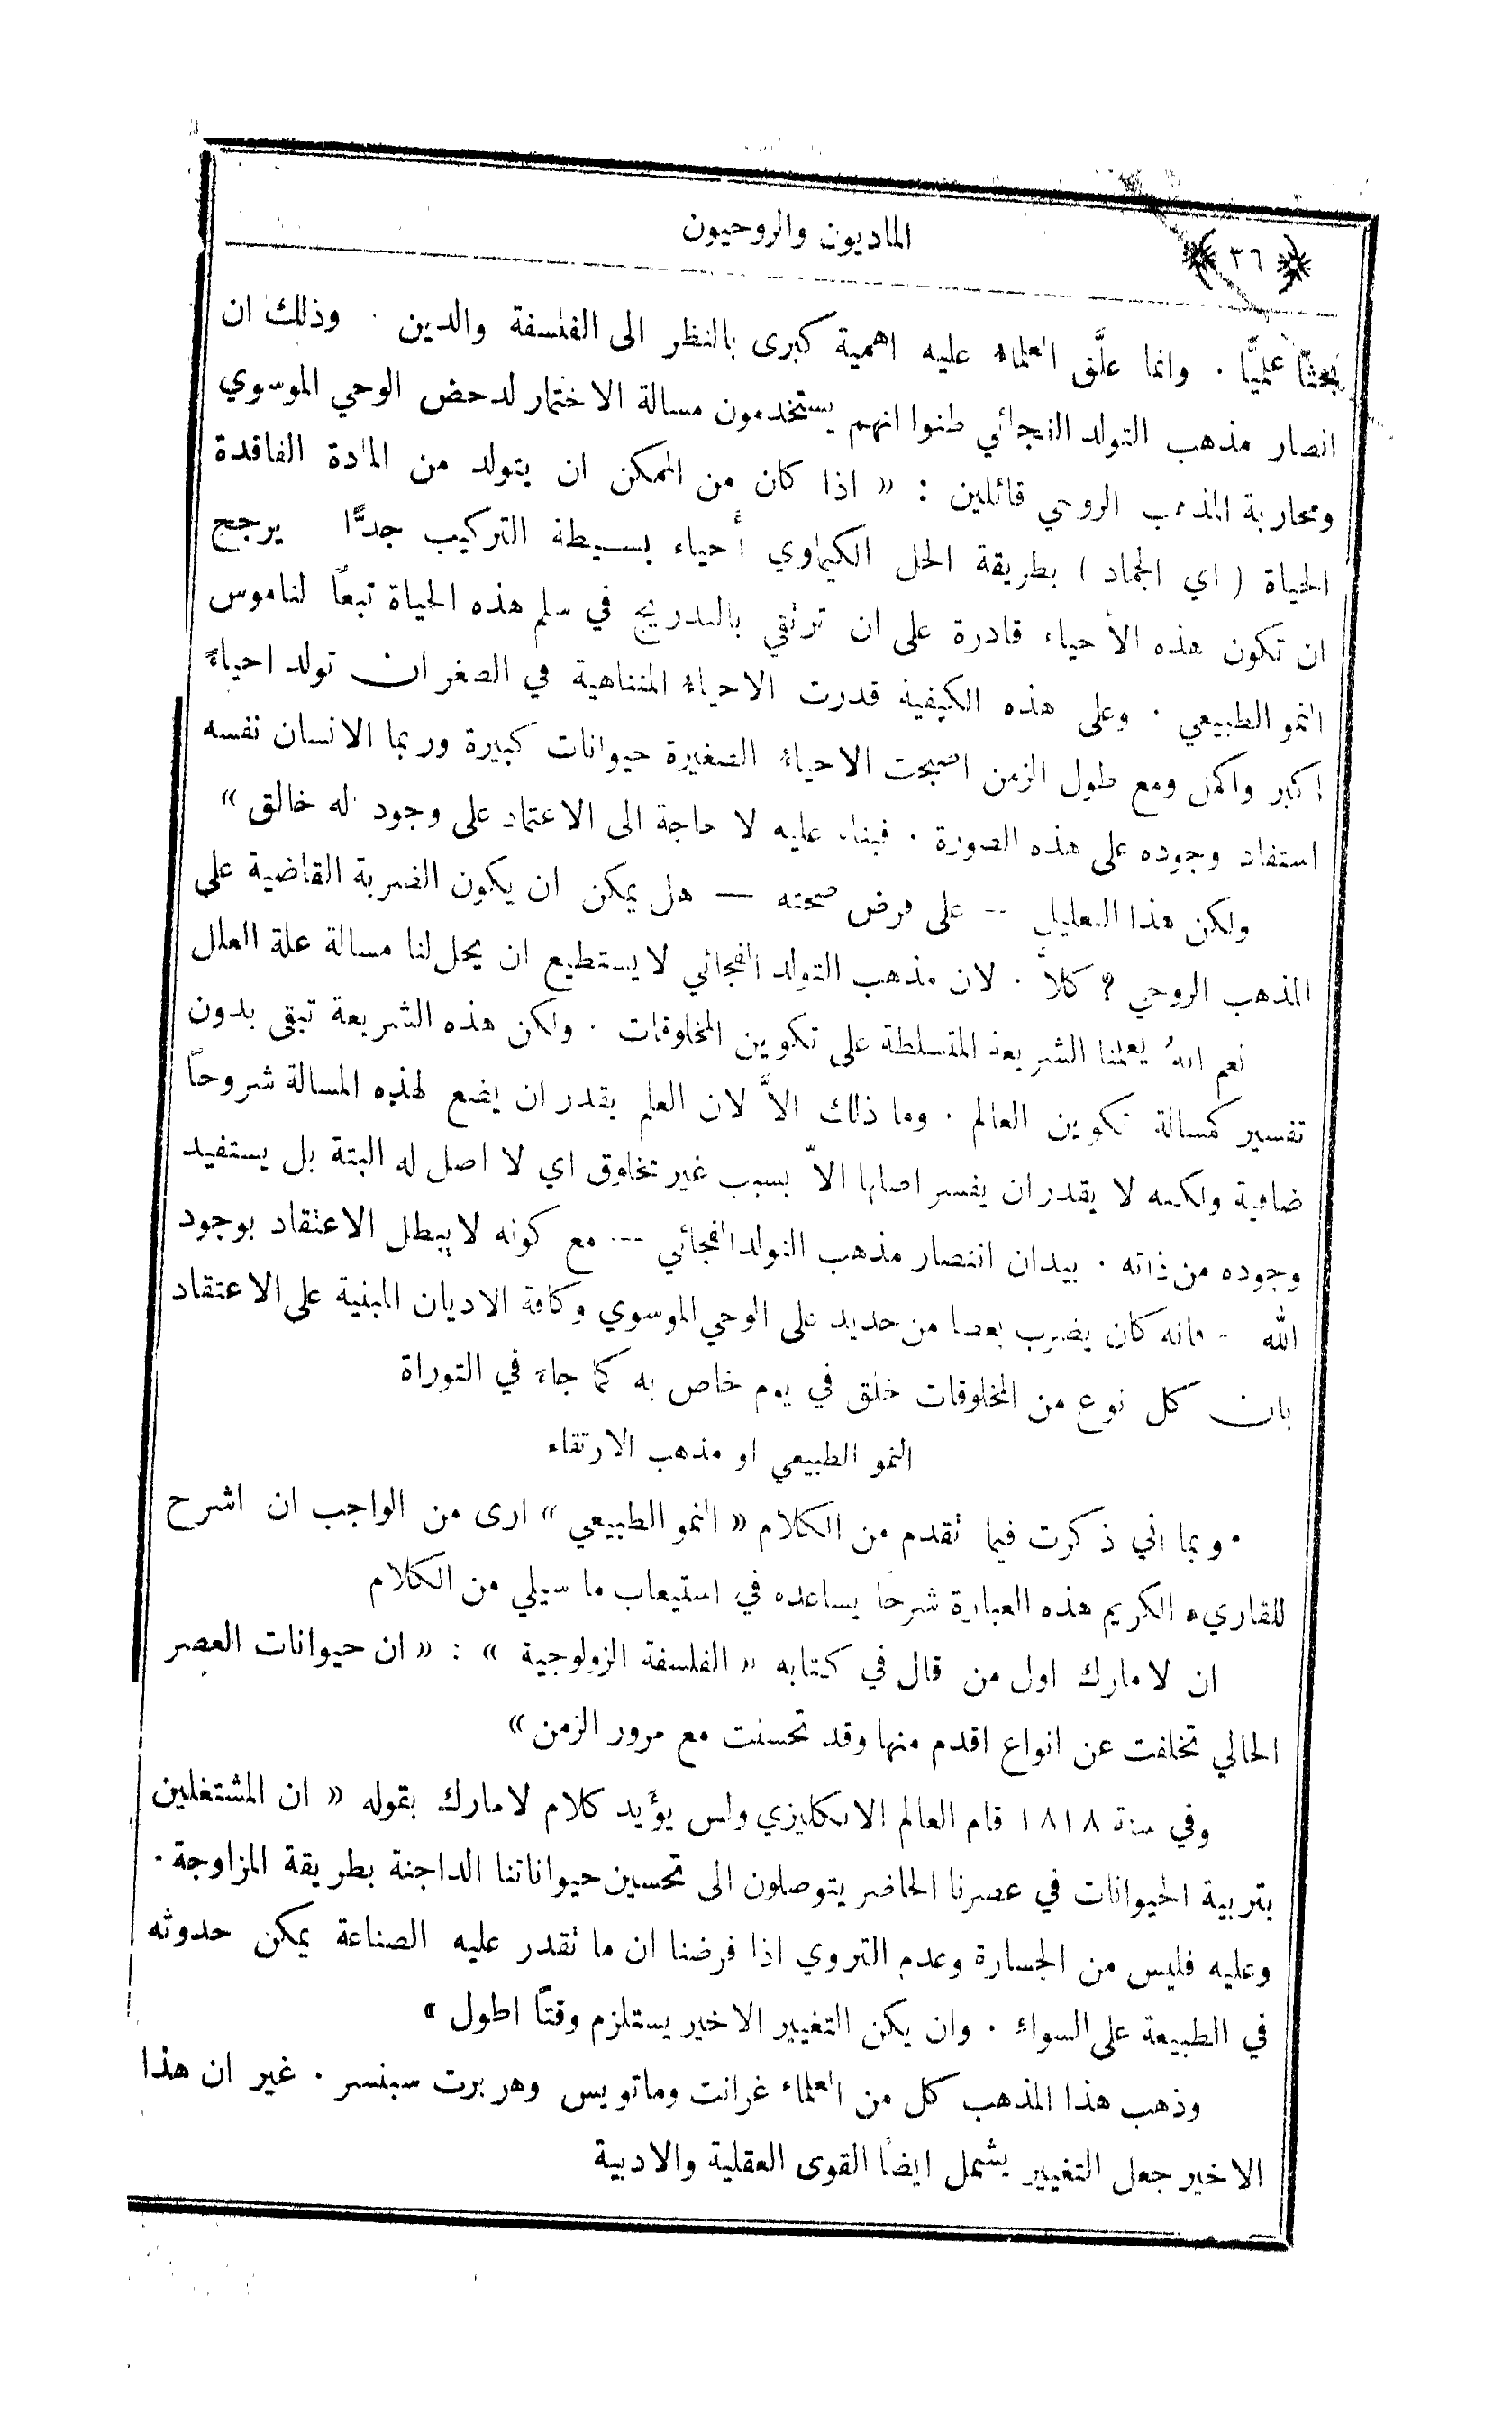 ﴿ ٣٦ ﴾
الماديون والروحيون
بحثًا علميًّا . وانما علَّق العلماء عليه اهمية كبرى بالنظر الى الفلسفة والدين . وذلك ان
انصار مذهب التولد الفجائي ظنوا انهم يستخدمون مسالة الاختمار لدحض الوحي الموسوي
ومحاربة المذهب الروحي قائلين : « اذا كان من الممكن ان يتولد من المادة الفاقدة
الحياة ( اي الجماد ) بطريقة الحل الكيماوي أحياء بسيطة التركيب جدًّا يرجح
ان تكون هذه الأحياء قادرة على ان ترتقي بالتدريج في سلم هذه الحياة تبعًا لناموس
النمو الطبيعي . وعلى هذه الكيفية قدرت الاحياء المتناهية في الصغر ان تولد احياءً
اكبر واكمل ومع طول الزمن اصبحت الاحياء الصغيرة حيوانات كبيرة وربما الانسان نفسه
استفاد وجوده على هذه الصورة . فبناء عليه لا حاجة الى الاعتماد على وجود اله خالق »
ولكن هذا التعليل -- على فرض صحته — هل يمكن ان يكون الضربة القاضية على
المذهب الروحي ? كلاَّ . لان مذهب التولد الفجائي لا يستطيع ان يحل لنا مسالة علة العلل
نعم انهُ يعلمنا الشريعة المتسلطة على تكوين المخلوقات . ولكن هذه الشريعة تبقى بدون
تفسير كمسالة تكوين العالم . وما ذلك الاَّ لان العلم يقدر ان يضع لهذه المسالة شروحاً
ضافية ولكنه لا يقدر ان يفسر اصلها الاّ بسبب غير مخلوق اي لا اصل له البتة بل يستفيد
وجوده من ذاته . بيد ان انتصار مذهب التولد الفجائي --- مع كونه لا يبطل الاعتقاد بوجود
الله - فانه كان يضرب بعصا من حديد على الوحي الموسوي وكافة الاديان المبنية على الاعتقاد
بان كل نوع من المخلوقات خلق في يوم خاص به كما جاء في التوراة
النمو الطبيعي او مذهب الارتقاء
وبما اني ذكرت فيما تقدم من الكلام « النمو الطبيعي » ارى من الواجب ان اشرح
للقاريء الكريم هذه العبارة شرحًا يساعده في استيعاب ما سيلي من الكلام
ان لامارك اول من قال في كتابه « الفلسفة الزولوجية » : « ان حيوانات العصر
الحالي تخلفت عن انواع اقدم منها وقد تحسنت مع مرور الزمن »
وفي سنة ١٨١٨ قام العالم الانكليزي ولس يؤيد كلام لامارك بقوله « ان المشتغلين
بتربية الحيوانات في عصرنا الحاضر يتوصلون الى تحسين حيواناتنا الداجنة بطريقة المزاوجة .
وعليه فليس من الجسارة وعدم التروي اذا فرضنا ان ما تقدر عليه الصناعة يمكن حدوثه
في الطبيعة على السواء . وان يكن التغيير الاخير يستلزم وقتًا اطول »
وذهب هذا المذهب كل من العلماء غرانت وماتويس وهربرت سبنسر . غير ان هذا
الاخير جعل التغيير يشمل ايضًا القوى العقلية والادبية